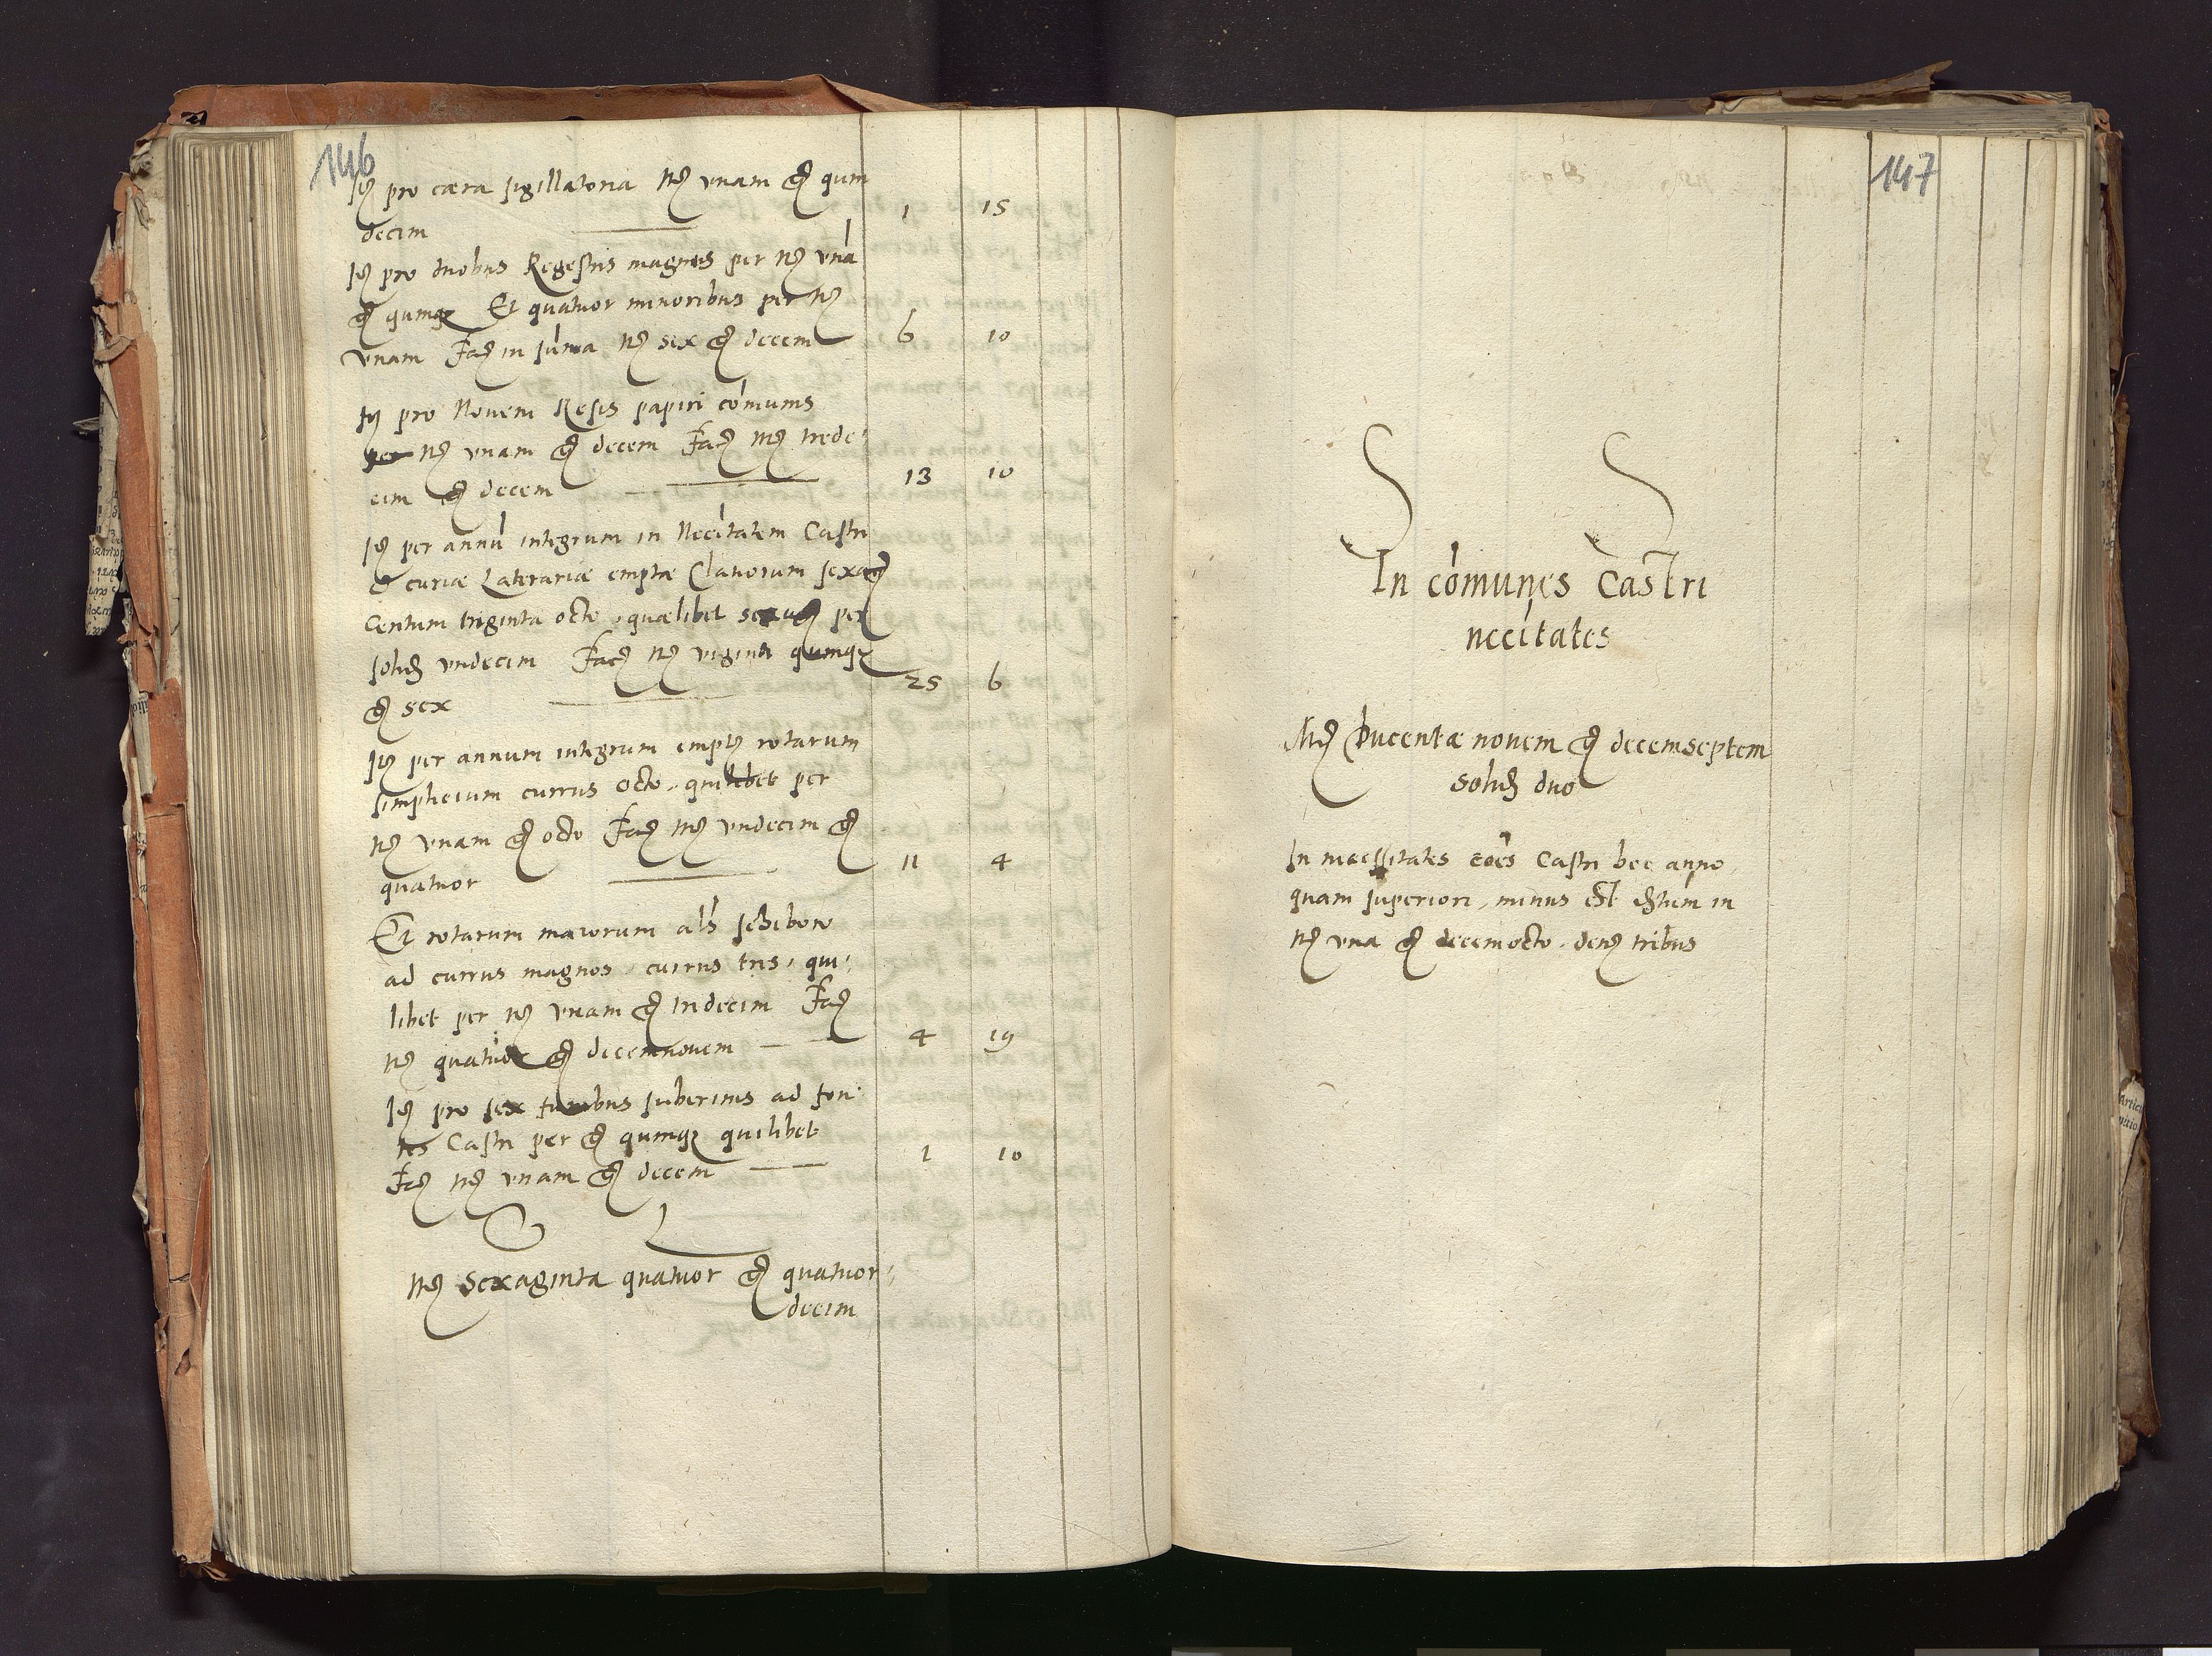 146
Itē pro caera sigillatoria Mr̄ vnam gr̄ quin
decim 1 15
Itē pro duobus Regestris magnis per Mr̄ vnā
gr̄ quinqꝫ Et quatuor minoribus per Mr̄
vnam Facr̄ in sum̄a Mr̄ sex gr̄ decem 6 10
Itē pro Nouem Resis papiri com̄unis
per Mr̄ vnam gr̄ decem Facr̄ Mr̄ trede:
cim gr̄ decem 13 10
Itē per annū integrum in Neccītatem Castri
& curiæ Laterariæ emptæ Clauorum sexagr̄
Centum triginta octo, quælibet per
solidr̄ vndecim Facr̄ Mr̄ viginti quinqꝫ
gr̄ sex 25 6
Itē per annum integrum emptr̄ rotarum
simplicium currus octo, quilibet per
Mr̄ vnam gr̄ octo Facr̄ Mr̄ vndecim gr̄
quatuor 11 4
Et rotarum maiorum als
ad currus magnos, currus tres, qui:
libet per Mr̄ vnam gr̄ tridecim Facr̄
Mr̄ quatuor gr̄ decemnouem 4 19
Itē pro sex funibus suberinis ad fon:
tes Castri per gr̄ quinqꝫ quilibet
Facr̄ Mr̄ vnam gr̄ decem 1 10
Mr̄ Sexaginta quatuor gr̄ quatuor:
decim
147
In com̄unes Castri
neccītates
Mr̄ Ducentæ nouem gr̄ decemseptem
Solidr̄ duo
In necessitates com̄es Castri hoc anno,
quam superiori, minus est in
Mr̄ vna gr̄ decemocto, denr̄ tribus